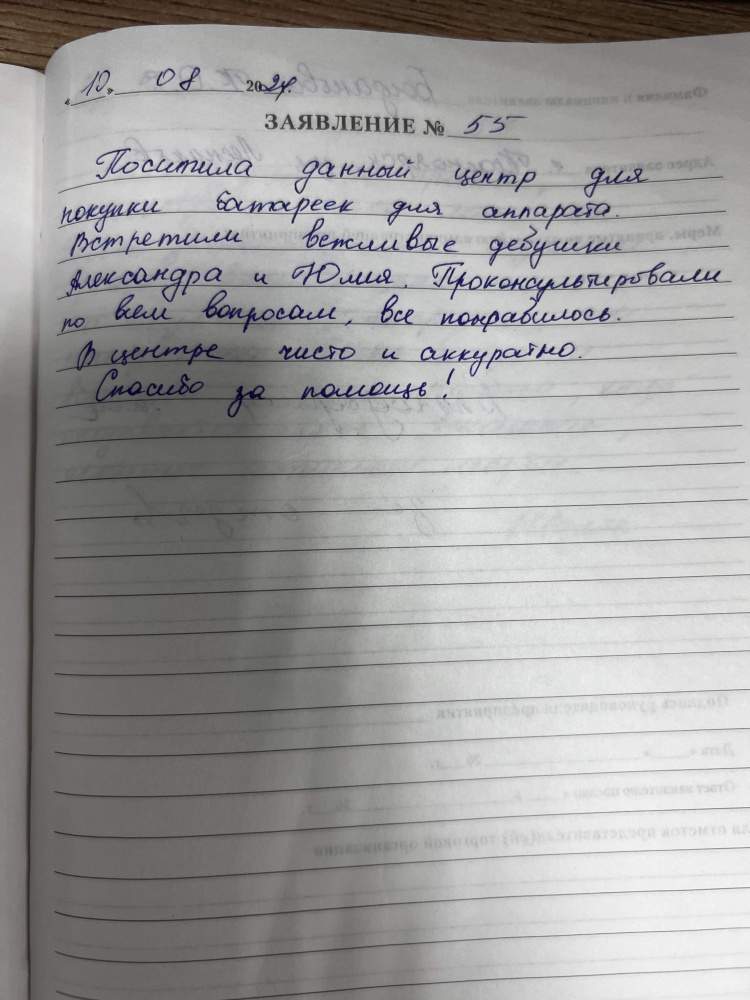 «10» 08 2024г.
ЗАЯВЛЕНИЕ № 55
Поситила данный центр для
покупки батареек для аппарата.
Встретили вежливые девушки
Александра и Юлия. Проконсультировали
по всем вопросам, все понравилось.
В центре чисто и аккуратно.
Спасибо за помощь!